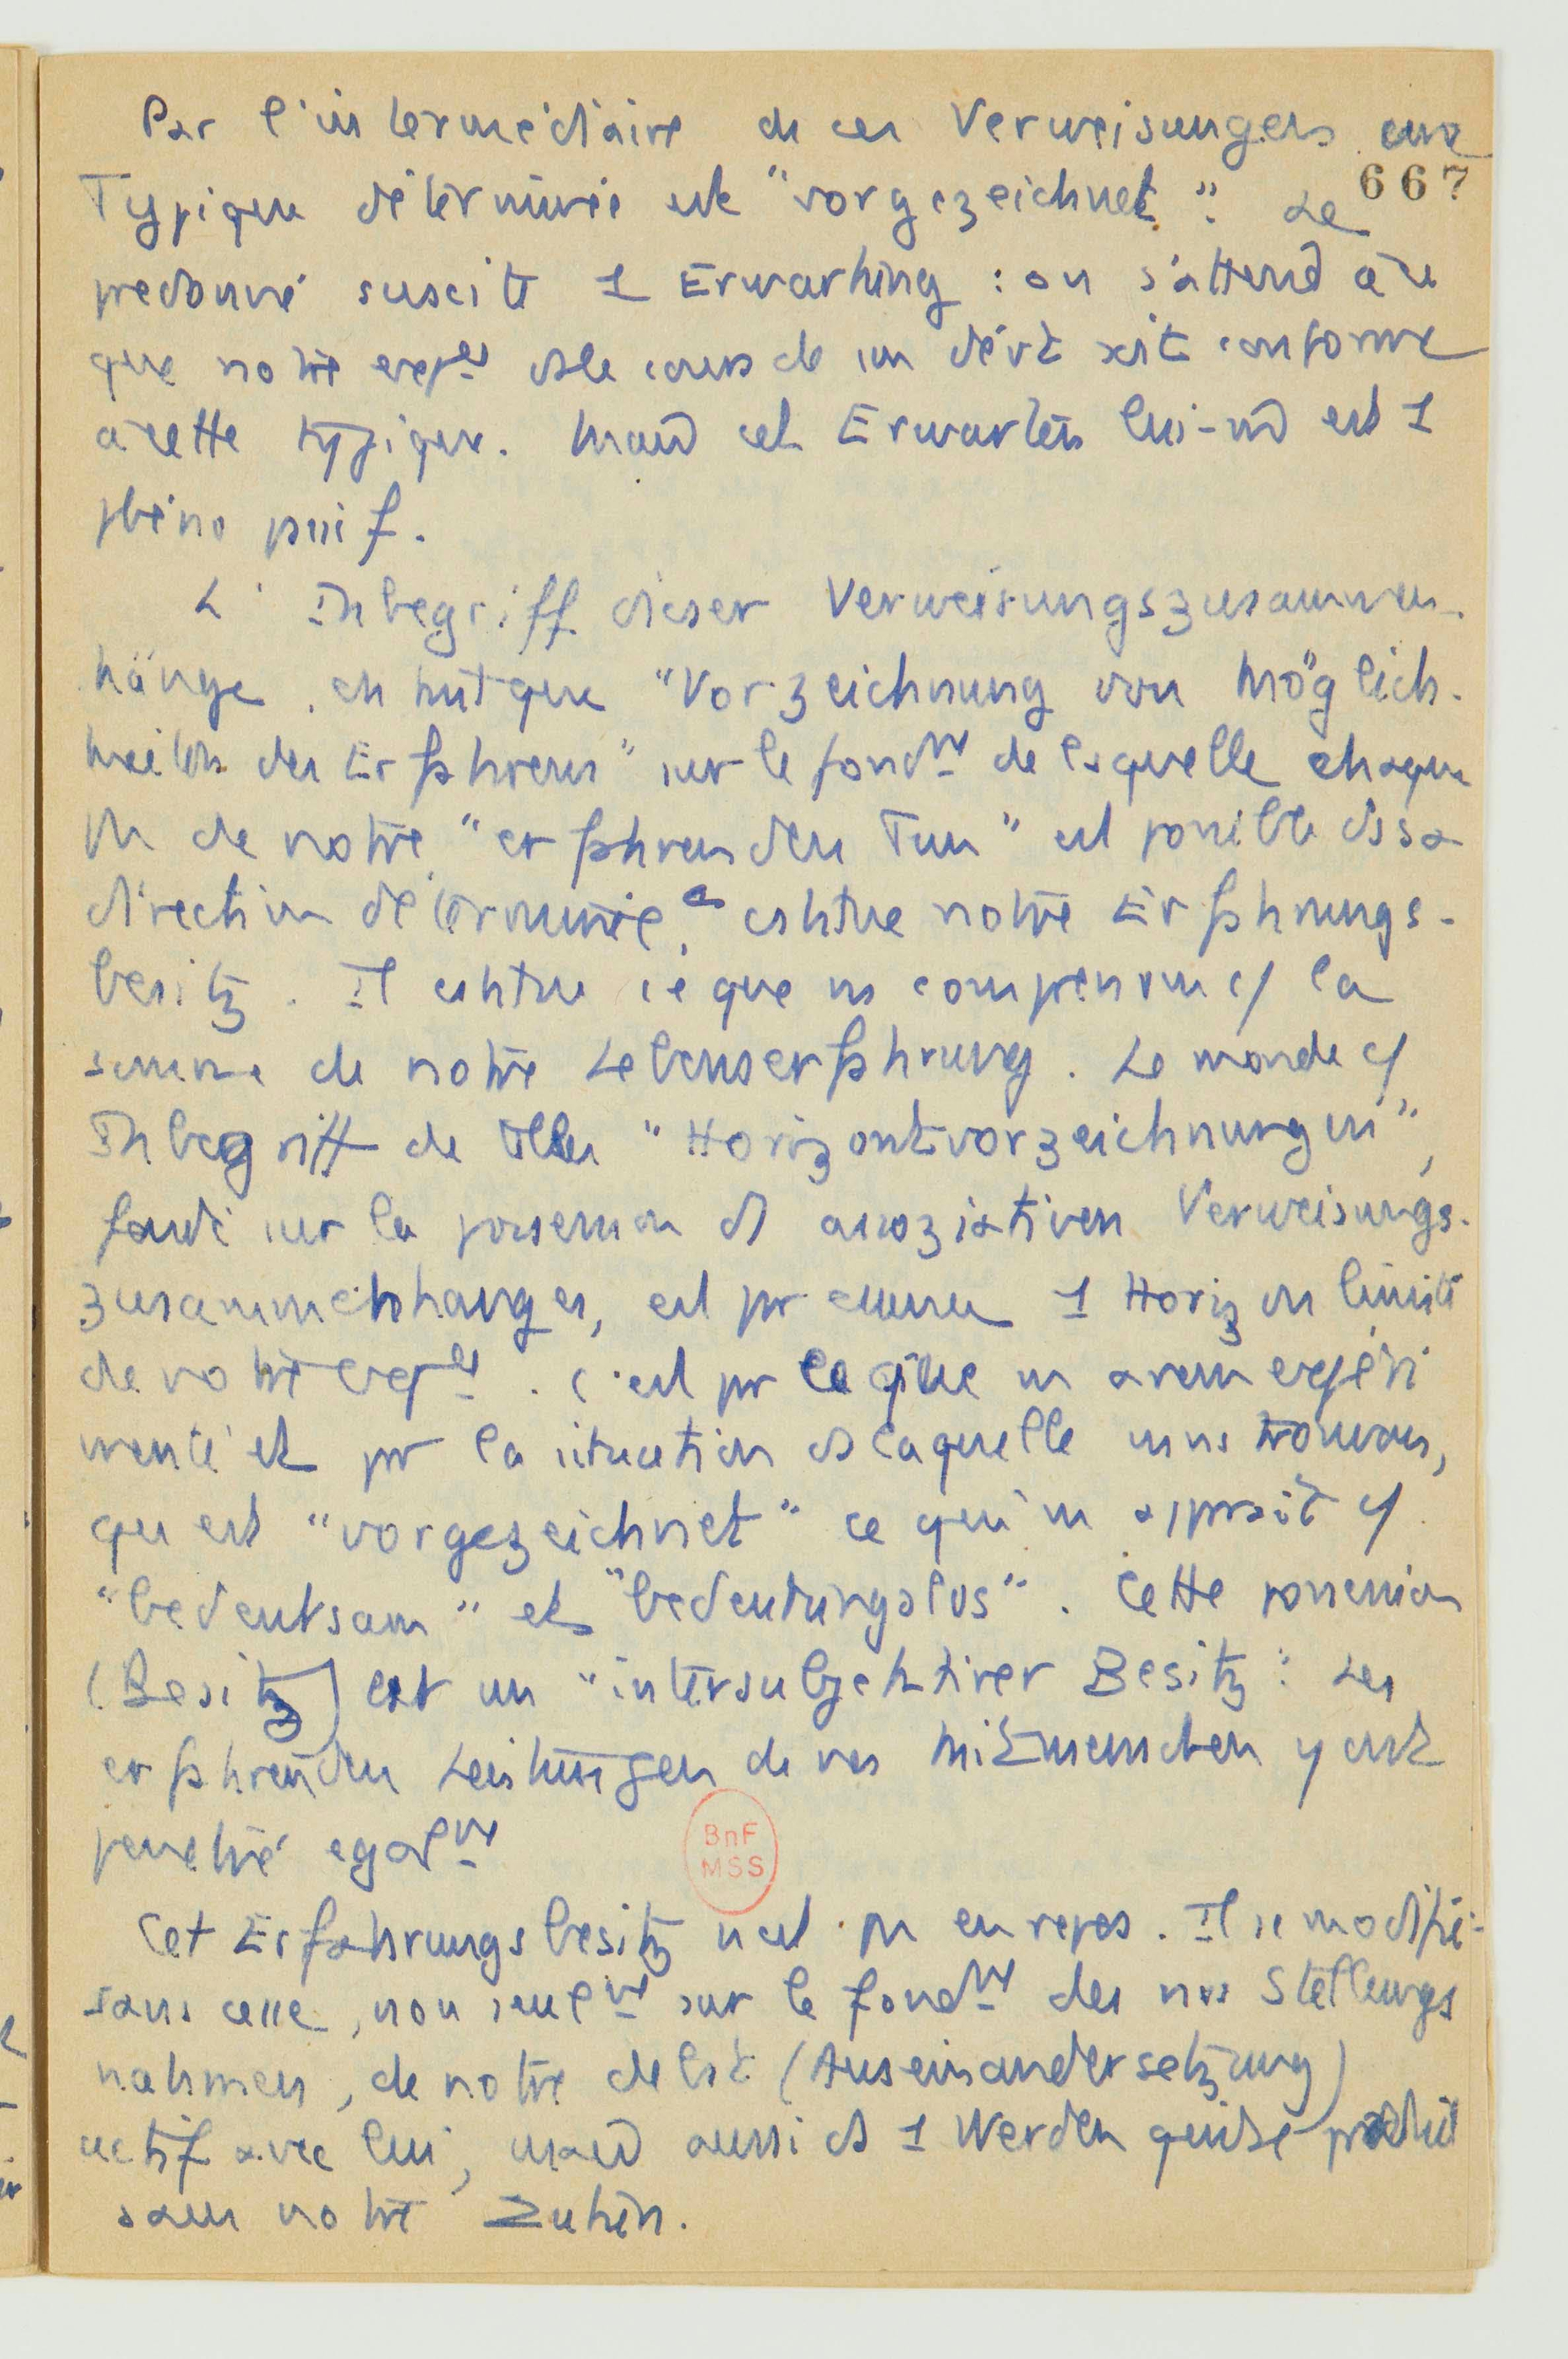 Par l'intermédiaire de ces Verweisungen une
667
Typique déterminée est "vorgezeichnet". Le
predonné suscite 1 Erwartung : on s'attend à ce
que notre expce ds le cours de son dévt soit conforme
à cette typique. Mais cet Erwarten lui-m̂ est 1
phéno passif.
L' Inbegriff dieser Verweisungszusammen-
hänge, en tant que "Vorzeichnung von Möglich-
keiten des Erfahrens" sur le fondmt de laquelle chaque
de notre "erfahrenden Tun" est possible ds sa
direction déterminée, constitue notre Erfahrungs-
besitz. Il constitue ce que ns comprenons c/ la
somme de notre Lebenserfahrung. Le monde c/
Inbegriff de telles "Horizontvorzeichnungen",
fondé sur la possession d assoziativen Verweisungs-
zusammenhanges, est pr chacun 1 Horizon limité
de notre expce. C'est pr ce que ns avons expéri
menté et pr la situation ds laquelle ns ns trouvons,
qu est "vorgezeichnet" ce qui ns apparaît c/
"bedeutsam" et "bedeutungslos". Cette possession
(Besitz) est un "intersubjektiver Besitz": Les
erfahrenden Leistungen de nos Mitmenschen y ont
penetré egalmt
Cet Erfahrungsbesitz n'est pas en repos. Il se modifie
sans cesse, non seulmt sur le fondmt des nos Stellungs
nahmen, de notre débat (Auseinandersetzung)
actif avec lui, mais aussi ds 1 Werden qui se produit
sans notre Zutun.
BnF
MSS